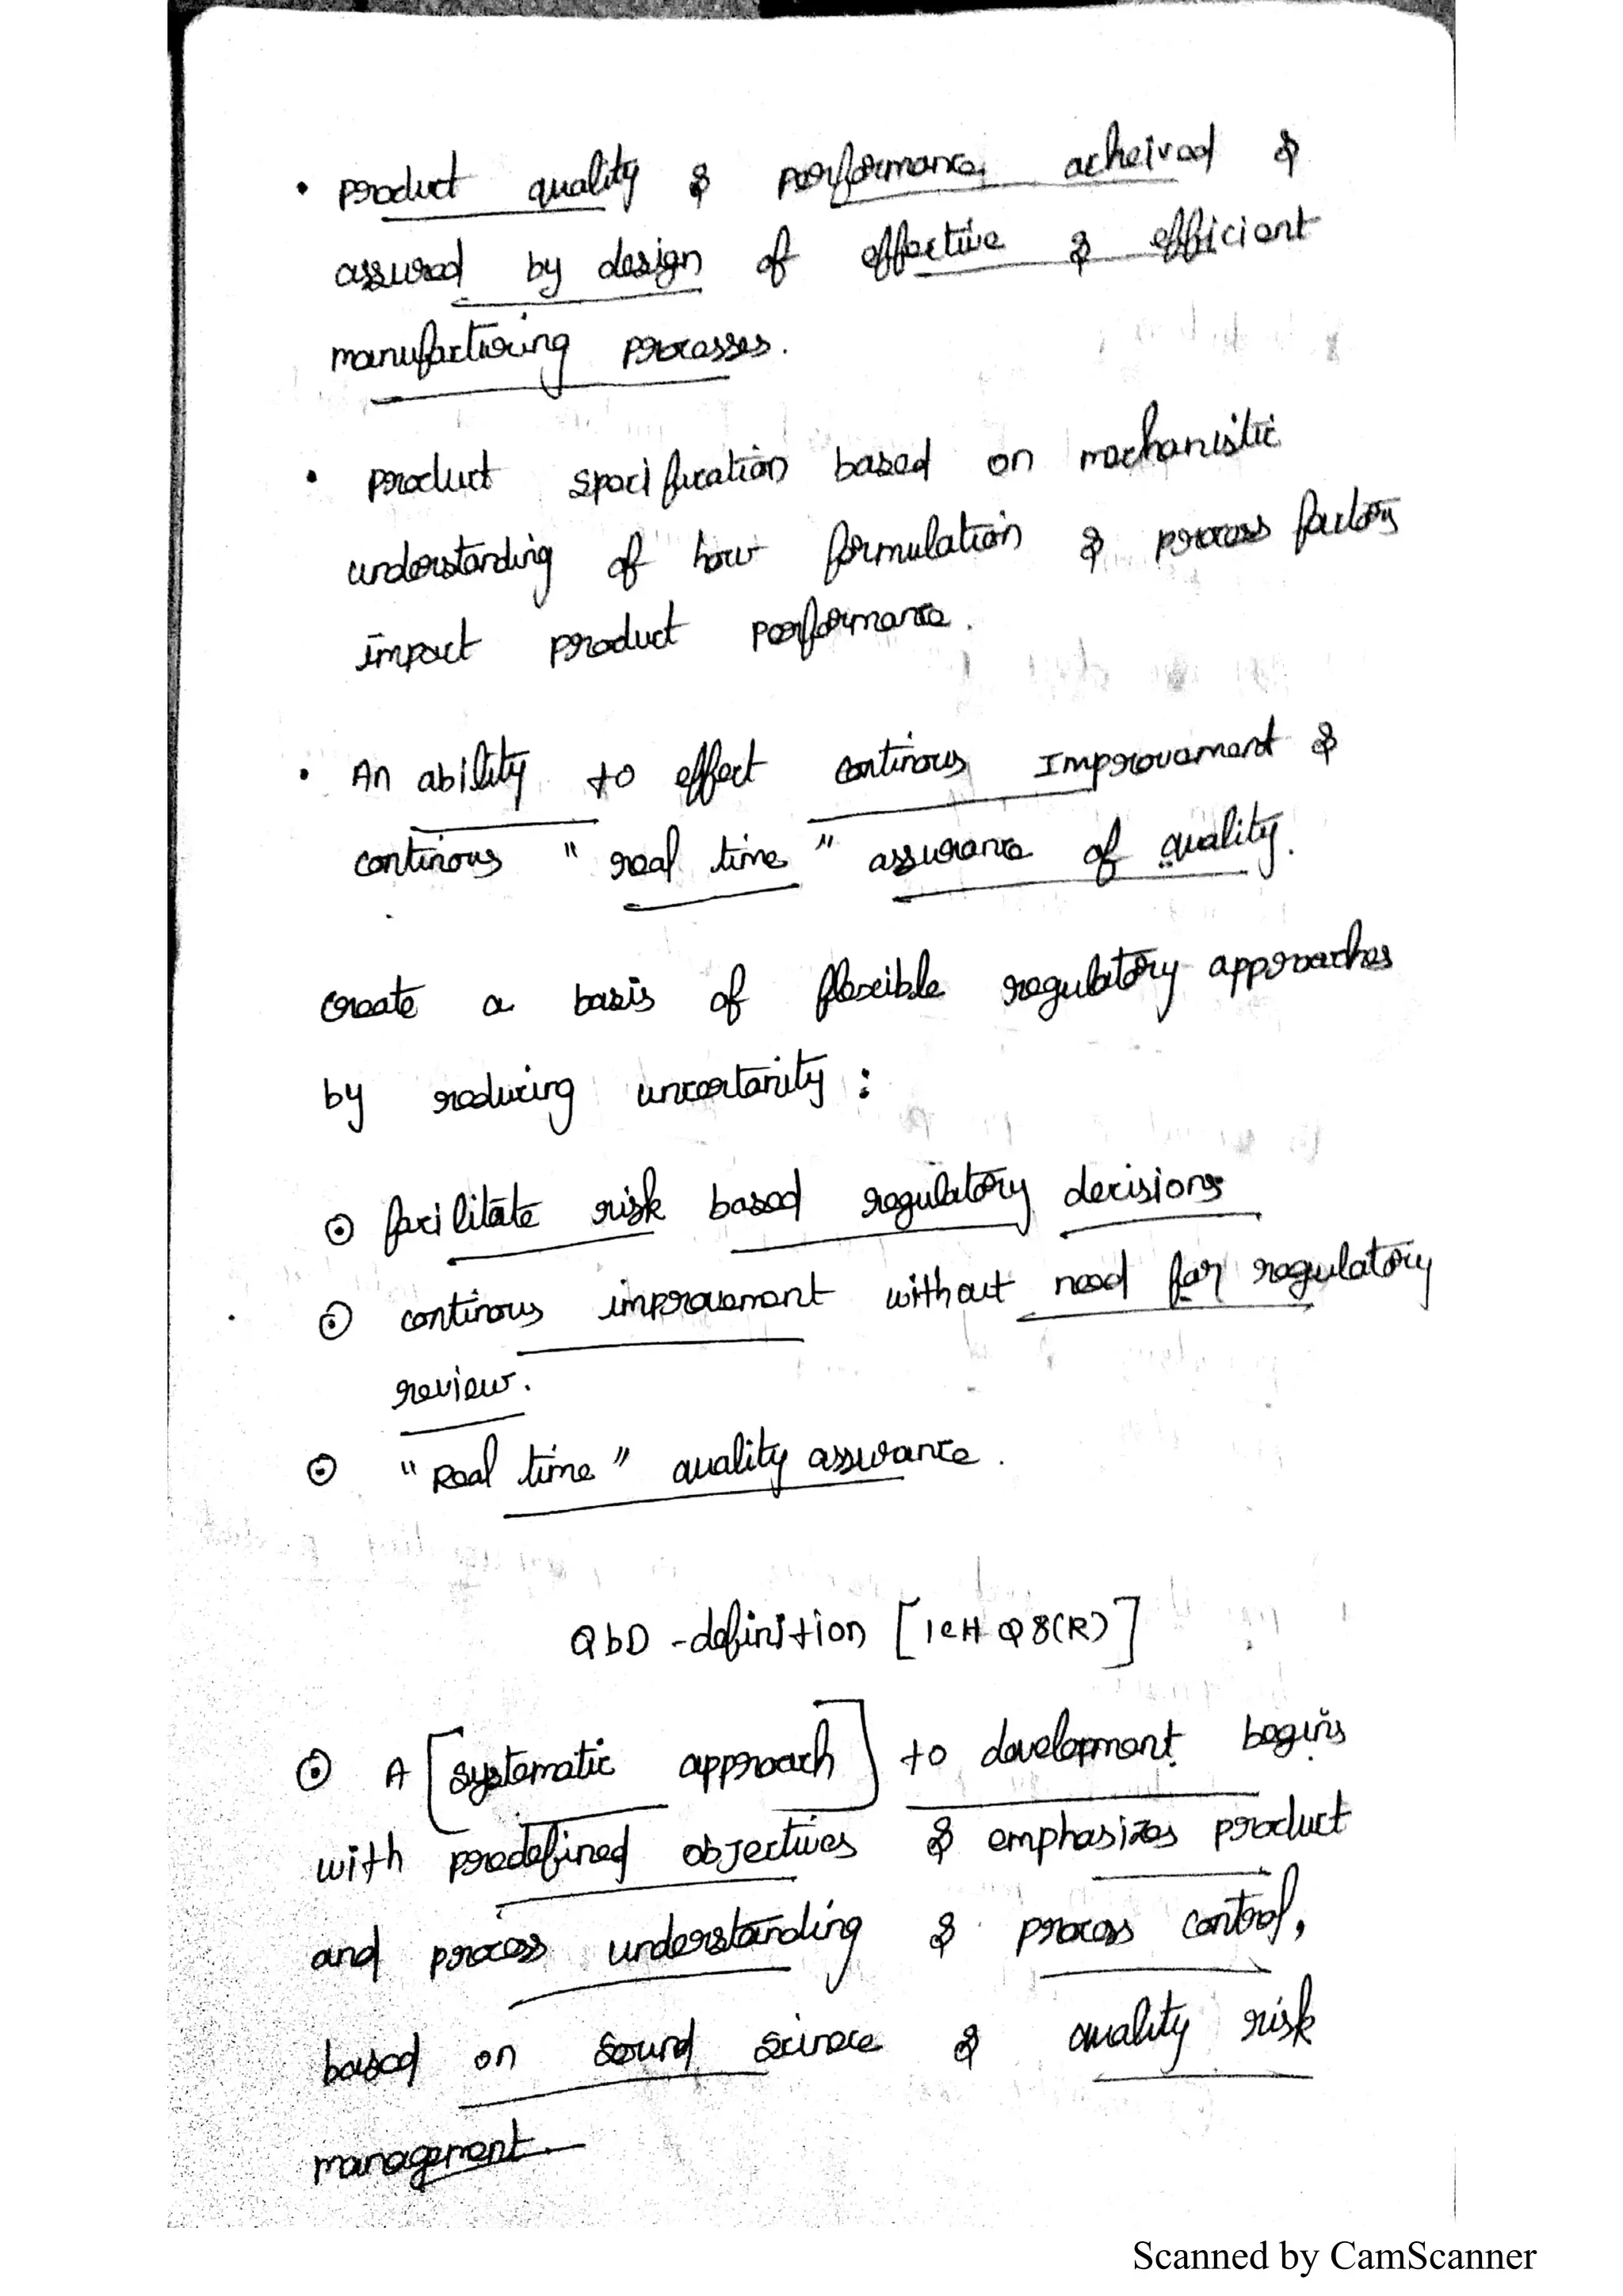 • product quality & performance acheived &
assured by design of effective & efficient
manufacturing processes.
• product specification based on mechanistic
understanding of how formulation & process factors
impact product performance.
• An ability to effect continous Improvement &
continous "real time" assurance of quality.
create a basis of flexible regulatory approaches
by reducing uncertanity :
⊙ facilitate risk based regulatory decisions
⊙ continous improvement without need for regulatory
review.
⊙ "Real time" quality assurance.
QbD - definition [ICH Q8(R)]
⊙ A [systematic approach] to development begins
with predefined objectives & emphasizes product
and process understanding & process control,
based on sound science & quality risk
management.
Scanned by CamScanner